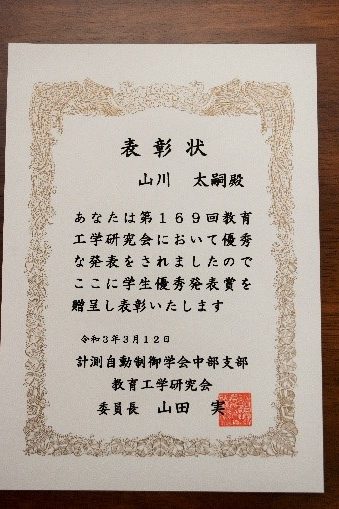 表彰状
山川 太嗣殿
あなたは第１６９回教育
工学研究会において優秀
な発表をされましたので
ここに学生優秀発表賞を
贈呈し表彰いたします
令和３年３月１２日
計測自動制御学会中部支部
教育工学研究会
委員長 山田 実